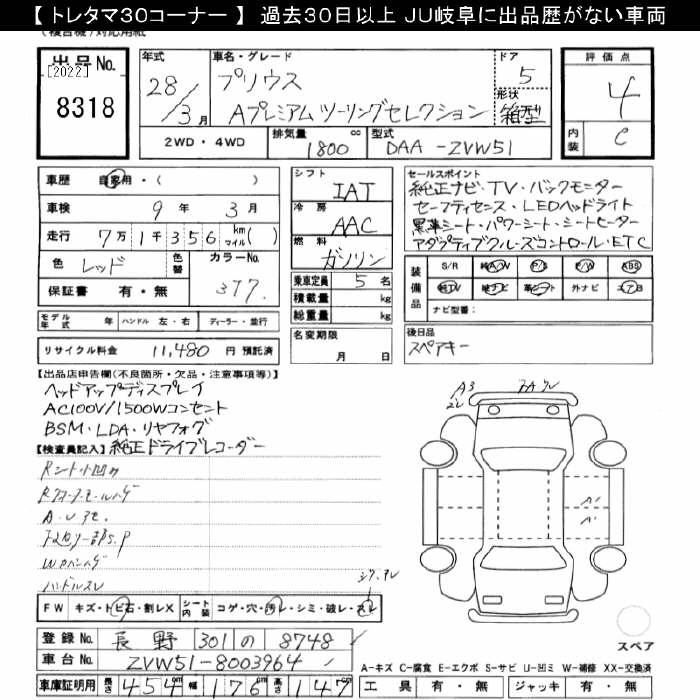 【 トレタマ30コーナー 】 過去30日以上 JU岐阜に出品歴がない車両
出品No.
[2022]
8318
28/3月
車名・グレード
プリウス
Aプレミアム ツーリングセレクション
ドア
5
形状
箱型
評価点
4
内装
C
2WD・4WD
排気量
1800
cc
型式
DAA-ZVW51
車歴 自家用・( )
車検 9年 3月
走行 7万1千356 km マイル( )
色 レッド 色替 カラーNo. 377
保証書 有・無
モデル年式 年 ハンドル 左・右 ディーラー・並行
リサイクル料金 11,480 円 預託済
シフト
IAT
冷房
AAC
燃料
ガソリン
乗車定員 5 名
積載量 kg
総重量 kg
名変期限
月 日
セールスポイント
純正ナビ・TV・バックモニター
セーフティセンス・LEDヘッドライト
黒革シート・パワーシート・シートヒーター
アダプティブクルーズコントロール・ETC
装備品
S/R 純A/W P/S P/W ABS
純TV 純ナビ 革シート 外ナビ エアB
ナビ型番:
後日品
スペアキー
【出品店申告欄(不良箇所・欠品・注意事項等)】
ヘッドアップディスプレイ
AC100V/1500Wコンセント
BSM・LDA・リヤフォグ
純正ドライブレコーダー
【検査員記入】
A・Uアセ
ハンドルスレ
A3
FW キズ・トビ石・割レX シート内装 コゲ・穴・汚レ・シミ・破レ・スレ
登録No. 長野 301 の 8748
車台No. ZVW51-8003964
車庫証明用 長さ 454cm 幅 176cm 高さ 147cm
スペア
A-キズ C-腐食 E-エクボ S-サビ U-凹ミ W-補修 XX-交換済
工具 有・無 ジャッキ 有・無